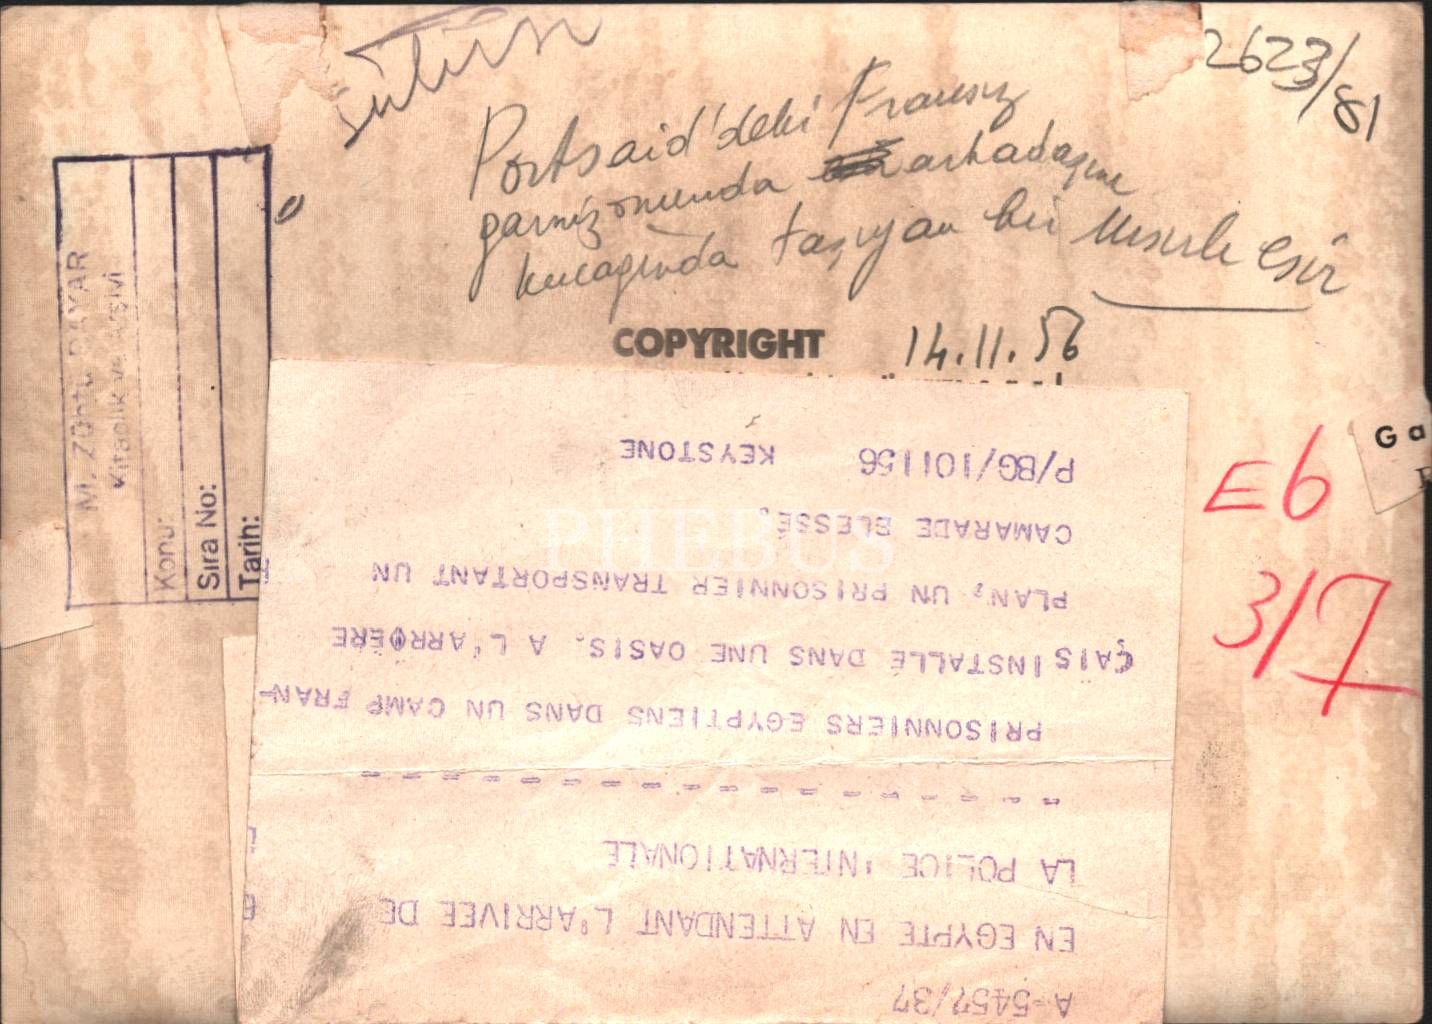 sütun
2623/81
Portsaid'deki Fransız
garnizonunda arkadaşını
kucağında taşıyan bir Mısırlı esir
COPYRIGHT
14.11.56
M. ZÜHTÜ BAYAR
Kitaplık ve Arşivi
Konu:
Sıra No:
Tarih:
E6
3/7
Ga
A-5457/37
EN EGYPTE EN ATTENDANT L'ARRIVEE DE
LA POLICE INTERNATIONALE
- - - - - - - - - - - - - - - - -
PRISONNIERS EGYPTIENS DANS UN CAMP FRAN-
ÇAIS INSTALLE DANS UNE OASIS. A L'ARRIERE
PLAN, UN PRISONNIER TRANSPORTANT UN
CAMARADE BLESSÉ.
P/BG/101156 KEYSTONE
PHEBUS